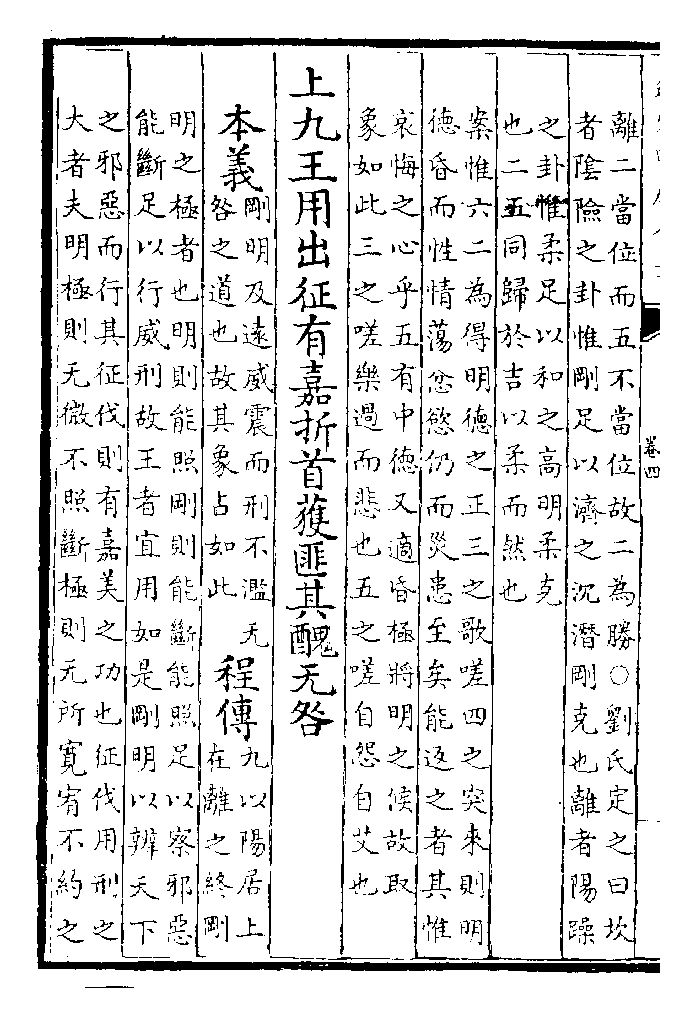 卷四
離二當位而五不當位故二為勝○劉氏定之曰坎
者陰險之卦惟剛足以濟之沈潛剛克也離者陽躁
之卦惟柔足以和之高明柔克
也二五同歸於吉以柔而然也
案惟六二為得明德之正三之歌嗟四之突來則明
德昏而性情蕩忿慾仍而災患至矣能返之者其惟
哀悔之心乎五有中德又適昏極將明之候故取
象如此三之嗟樂過而悲也五之嗟自怨自艾也
上九王用出征有嘉折首獲匪其醜无咎
本義
剛明及遠威震而刑不濫无
咎之道也故其象占如此
程傳
九以陽居上
在離之終剛
明之極者也明則能照剛則能斷能照足以察邪惡
能斷足以行威刑故王者宜用如是剛明以辨天下
之邪惡而行其征伐則有嘉美之功也征伐用刑之
大者夫明極則无微不照斷極則无所寬宥不約之